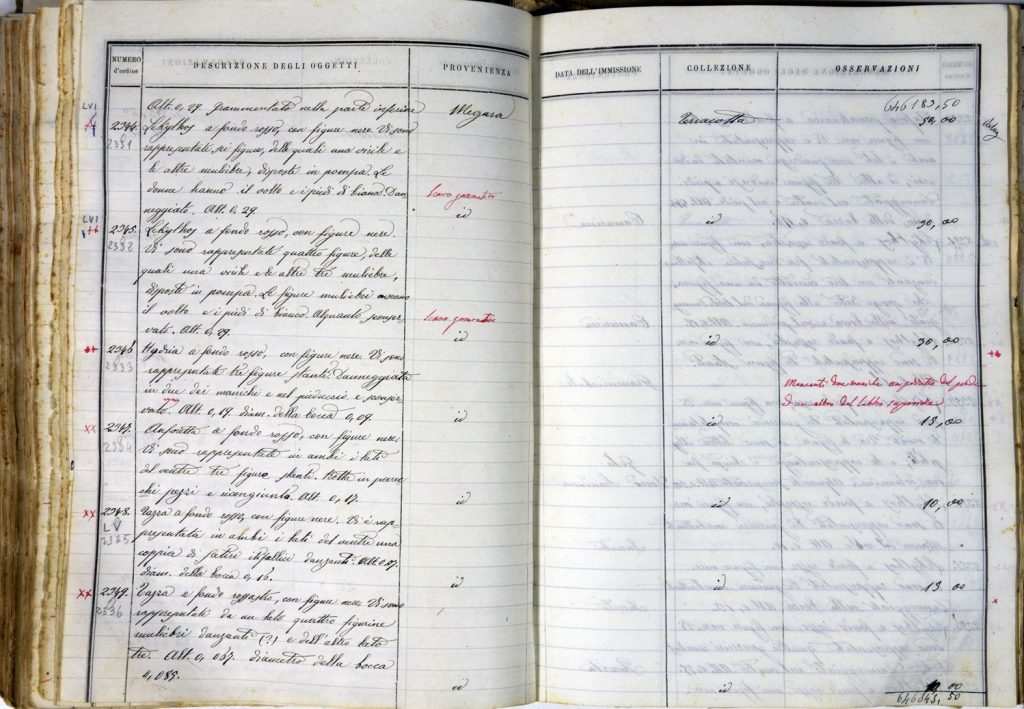 NUMERO d'ordine
DESCRIZIONE DEGLI OGGETTI
PROVENIENZA
DATA DELL'IMMISSIONE
COLLEZIONE
OSSERVAZIONI
646183,50
Alt. 0,29. Frammentato nella parte inferiore
Megara
Terracotta
50,00
LVI
2344. Lekythos a fondo rosso, con figure nere. Vi sono
2331
rappresentate sei figure, delle quali una virile e
le altre muliebri, disposte in pompa. Le
donne hanno il volto e i piedi di bianco. Dan
neggiato. Alt. 0,29.
id
id
30,00
LVI
2345. Lekythos a fondo rosso, con figure nere.
2332
Vi sono rappresentate quattro figure, delle
quali una virile e le altre tre muliebri,
disposte in pompa. Le figure muliebri
il volto e i piedi di bianco. Alquanto
vato. Alt. 0,29.
id
id
30,00
2346. Hydria a fondo rosso, con figure nere. Vi sono
2333
rappresentate tre figure stanti. Danneggiata
in due dei maniche e nel
vato. Alt. 0,19. diam. della bocca 0,09.
id
id
Mancanti due maniche
d'un altro del labbro superiore
15,00
2347. a fondo rosso, con figure nere.
2334
Vi sono rappresentate in ambi i lati
del ventre tre figure stanti. Rotta in parec
chi pezzi e ricongiunta. Alt. 0,17.
id
id
10,00
2348. Tazza a fondo rosso, con figure nere. Vi è rap
LV
2335
presentata in ambi i lati del ventre una
coppia di satiri itifallici danzanti. Alt. 0,07.
diam. della bocca
id
id
15 00
2349. Tazza a fondo rossastro, con figure nere. Vi sono
2336
rappresentate da un lato quattro figurine
muliebri danzanti (?) e dell'altro lato
tre. Alt. 0,065. diametro della bocca
0,085.
id
id
10 00